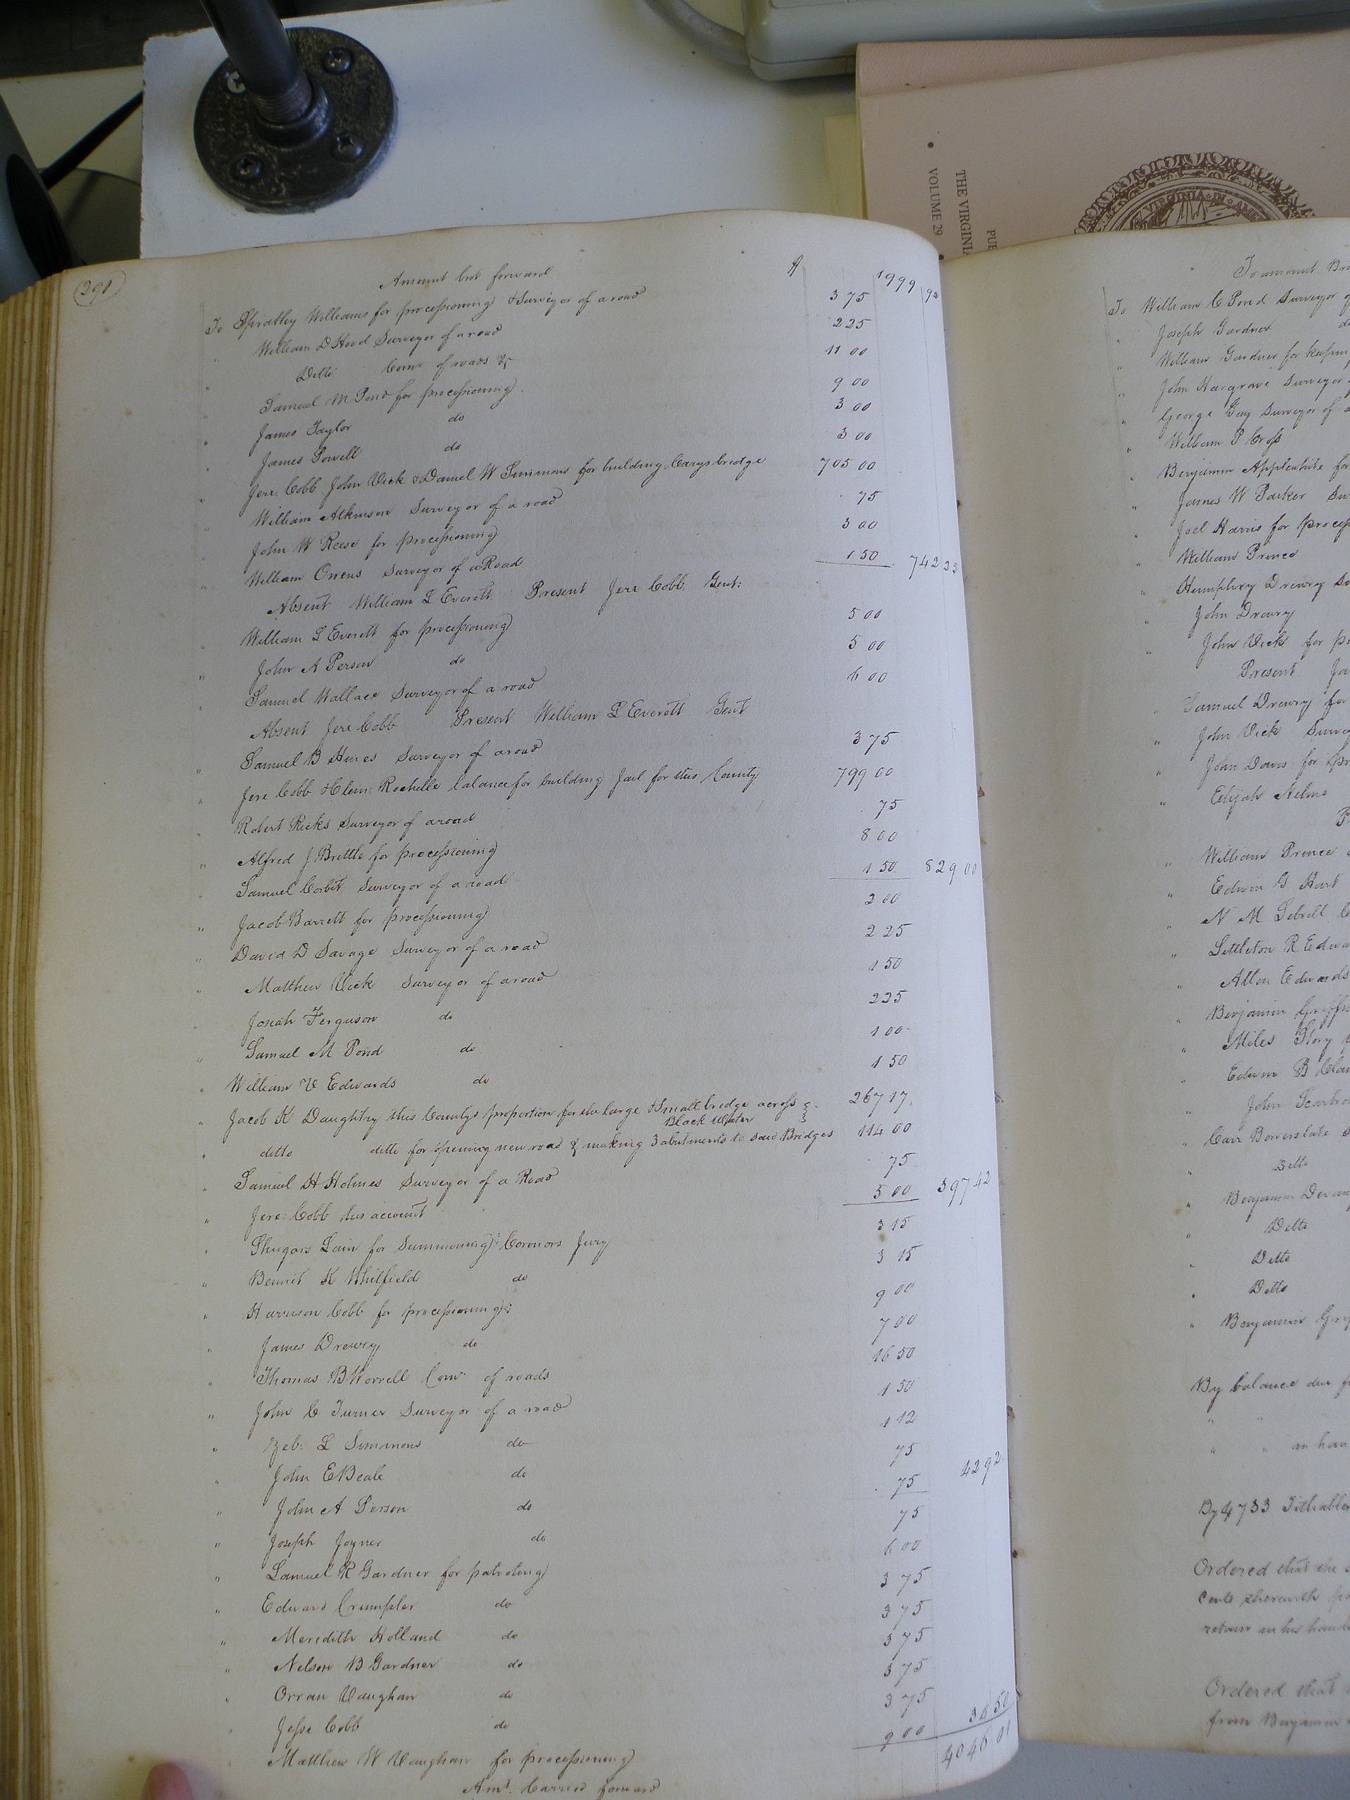 THE VIRGINI
VOLUME 29
PUB
VIRGINIA
291
Amount brot forward 1999 92
To Spratley Williams for processioning & Surveyor of a road 3 75
" William D Hood Surveyor of a road 2 25
" Ditto Comr of roads & 11 00
" Samuel M Pond for processioning 9 00
" James Taylor do 3 00
" James Powell do 3 00
" Jere: Cobb John Vick & Daniel W Simmons for building Carys bridge 705 00
" William Atkinson Surveyor of a road 75
" John W Reese for processioning 3 00
" William Owens Surveyor of a Road 1 50 742 25
Absent William L Everett Present Jere Cobb Gent:
William L Everett for processioning 5 00
" John A Person do 5 00
Samuel Wallace Surveyor of a road 6 00
Absent Jere Cobb Present William L Everett Gent
" Samuel B Hines Surveyor of a road 3 75
" Jere Cobb & Clem: Rochelle balance for building Jail for this County 799 00
Robert Ricks Surveyor of a road 75
" Alfred J Brittle for processioning 8 00
" Samuel Corbit Surveyor of a road 1 50 829 00
" Jacob Barrett for processioning 3 00
" David D Savage Surveyor of a road 2 25
" Matthew Vick Surveyor of a road 1 50
" Josiah Ferguson do 2 25
" Samuel M Pond do 1 00
" William V Edwards do 1 50
" Jacob K Daughtry this Countys proportion for the large & Small bridge across 267 17
Black Water
" ditto ditto for opening new road & making 3 abutments to said Bridges 114 00
" Samuel H Holmes Surveyor of a Road 75
" Jere: Cobb his account 5 00 397 42
" Shugars Lain for Summoning Coronors Jury 3 15
" Bennit K Whitfield do 3 15
" Harrison Cobb for processioning 9 00
" James Drewry do 7 00
" Thomas B Worrell Comr of roads 16 50
" John C Turner Surveyor of a road 1 50
" Zeb: L Simmons do 1 12
" John E Beale do 75
" John A Person do 75 42 92
" Joseph Joyner do 75
" Samuel R Gardner for patroling 6 00
" Edward Crumpler do 3 75
" Meredith Holland do 3 75
" Nelson B Gardner do 3 75
" Orran Vaughan do 3 75
" Jesse Cobb do 3 75
" Matthew W Vaughan for processioning 9 00 36 50
Amt. Carried forward 4046 01
To amount Bro
To William C Pond Surveyor of
" Joseph Gardner do
" William Gardner for keeping
" John Hargrave Surveyor
" George Gay Surveyor of a
" William P Cross
" Benjamin Applewhite for
" James W Parker Sur
" Joel Harris for process
" William Prince
" Humphrey Drewry Su
" John Drewry
" John Vick for pr
Present
" Samuel Drewry for
" John Vick Survey
" John Davis for pr
" Elijah Helms
" William Prince
" Edwin G Hart
" N M Sebrell
" Littleton R Edwa
" Allen Edwards
" Benjamin Griffin
" Miles Story
" Edwin B Clau
" John
" Carr Bowers
" Ditto
" Benjamin
" Ditto
" Ditto
" Ditto
" Benjamin
By balance due f
" " in han
By 4733 Tithables
Ordered that the
Cents therewith
return in his hands
Ordered that
from Benjamin